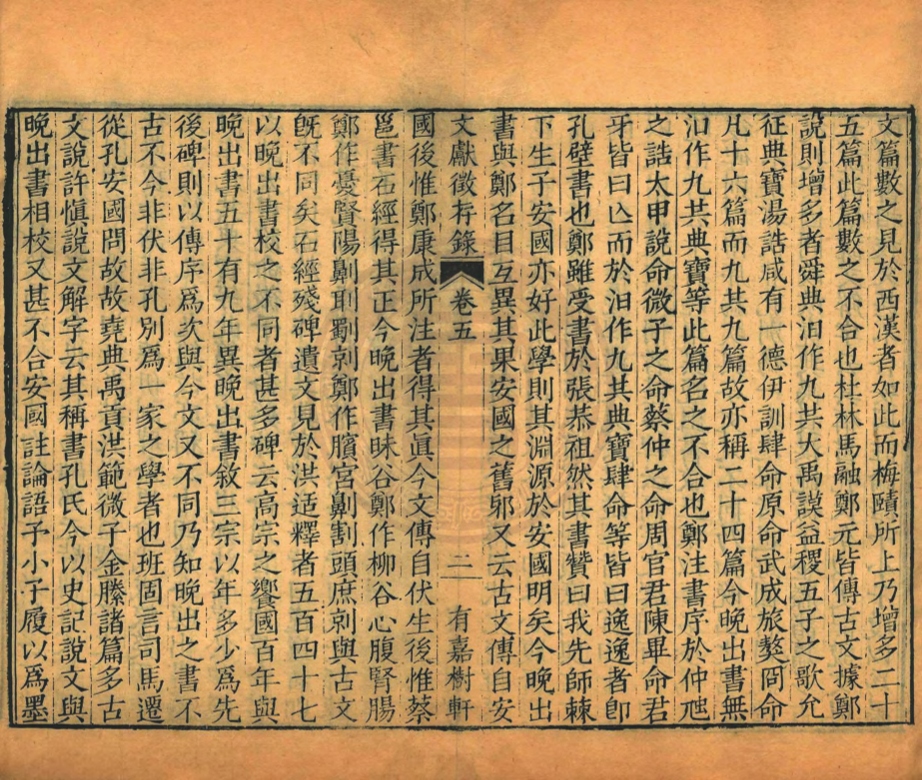 文篇數之見於西漢者如此而梅賾所上乃增多二十
五篇此篇數之不合也杜林馬融鄭元皆傳古文據鄭
說則增多者舜典汨作九共大禹謨益稷五子之歌允
征典寶湯誥咸有一德伊訓肆命原命武成旅獒冏命
凡十六篇而九共九篇故亦稱二十四篇今晚出書無
汨作九共典寶等此篇名之不合也鄭注書序於仲虺
之誥太甲說命微子之命蔡仲之命周官君陳畢命君
牙皆曰亾而於汨作九共典寶肆命等皆曰逸逸者卽
孔壁書也鄭雖受書於張恭祖然其書贊曰我先師棘
下生子安國亦好此學則其淵源於安國明矣今晚出
書與鄭名目互異其果安國之舊邪又云古文傳自安
文獻徵存錄
卷五
二
有嘉樹軒
國後惟鄭康成所注者得其眞今文傳自伏生後惟蔡
邕書石經得其正今晚出書昧谷鄭作柳谷心腹腎腸
鄭作憂腎陽劓刵劅剠鄭作臏宮劓割頭庶剠與古文
旣不同矣石經殘碑遺文見於洪适釋者五百四十七
以晚出書校之不同者甚多碑云高宗之饗國百年與
晚出書五十有九年異晚出書敘三宗以年多少爲先
後碑則以傳序爲次與今文又不同乃知晚出之書不
古不今非伏非孔別爲一家之學者也班固言司馬遷
從孔安國問故故堯典禹貢洪範微子金縢諸篇多古
文說許愼說文解字云其稱書孔氏今以史記說文與
晚出書相校又甚不合安國註論語予小子履以爲墨